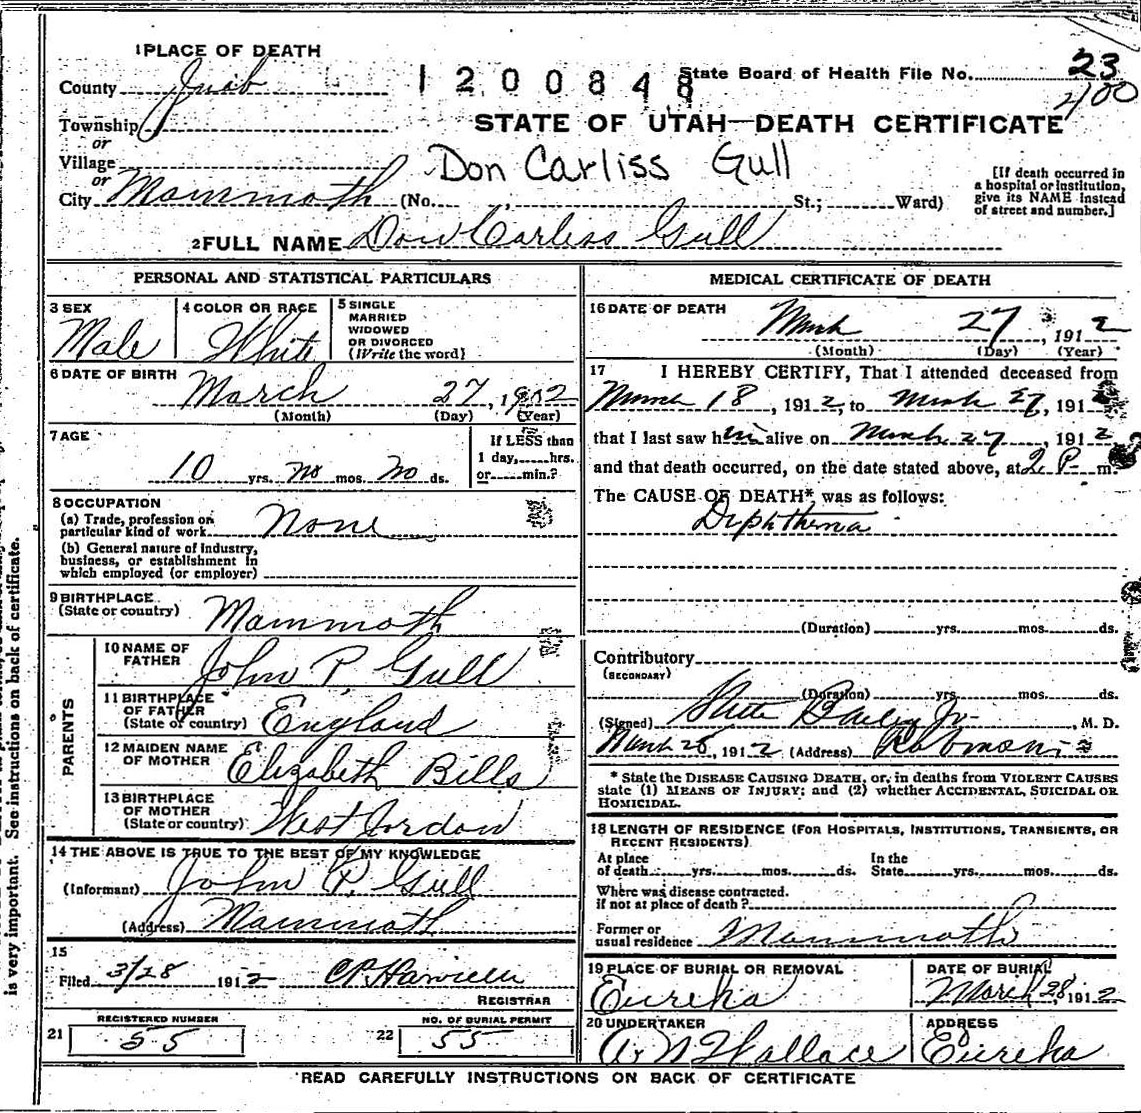 1 PLACE OF DEATH
County Juab
1200848
State Board of Health File No. 23
400
Township
or
Village
or
City Mammoth (No. , St.; Ward)
STATE OF UTAH—DEATH CERTIFICATE
Don Carliss Gull
[If death occurred in
a hospital or institution,
give its NAME instead
of street and number.]
2 FULL NAME Don Carliss Gull
PERSONAL AND STATISTICAL PARTICULARS
3 SEX
Male
4 COLOR OR RACE
White
5 SINGLE
MARRIED
WIDOWED
OR DIVORCED
(Write the word)
6 DATE OF BIRTH March 27, 1902
(Month) (Day) (Year)
7 AGE
10 yrs. no mos. no ds.
If LESS than
1 day, hrs.
or min.?
8 OCCUPATION
(a) Trade, profession or
particular kind of work None
(b) General nature of industry,
business, or establishment in
which employed (or employer)
9 BIRTHPLACE
(State or country) Mammoth
PARENTS
10 NAME OF
FATHER John P. Gull
11 BIRTHPLACE
OF FATHER
(State or country) England
12 MAIDEN NAME
OF MOTHER Elizabeth Bills
13 BIRTHPLACE
OF MOTHER
(State or country) West Jordon
14 THE ABOVE IS TRUE TO THE BEST OF MY KNOWLEDGE
(Informant) John P. Gull
(Address) Mammoth
15
Filed 3/28 1912
REGISTRAR
21 REGISTERED NUMBER
55
22 NO. OF BURIAL PERMIT
55
MEDICAL CERTIFICATE OF DEATH
16 DATE OF DEATH March 27, 1912
(Month) (Day) (Year)
17 I HEREBY CERTIFY, That I attended deceased from
March 18, 1912, to March 27, 1912
that I last saw him alive on March 27, 1912
and that death occurred, on the date stated above, at 2 P m.
The CAUSE OF DEATH* was as follows:
Diphtheria
(Duration) yrs. mos. ds.
Contributory
(SECONDARY)
(Duration) yrs. mos. ds.
(Signed) Bailey Jr , M. D.
March 28, 1912 (Address)
* State the DISEASE CAUSING DEATH, or, in deaths from VIOLENT CAUSES
state (1) MEANS OF INJURY; and (2) whether ACCIDENTAL, SUICIDAL OR
HOMICIDAL.
18 LENGTH OF RESIDENCE (FOR HOSPITALS, INSTITUTIONS, TRANSIENTS, OR
RECENT RESIDENTS)
At place
of death yrs. mos. ds.
In the
State yrs. mos. ds.
Where was disease contracted.
if not at place of death?
Former or
usual residence Mammoth
19 PLACE OF BURIAL OR REMOVAL
Eureka
DATE OF BURIAL
March 28, 1912
20 UNDERTAKER
A. N. Wallace
ADDRESS
Eureka
READ CAREFULLY INSTRUCTIONS ON BACK OF CERTIFICATE
is very important. See instructions on back of certificate.